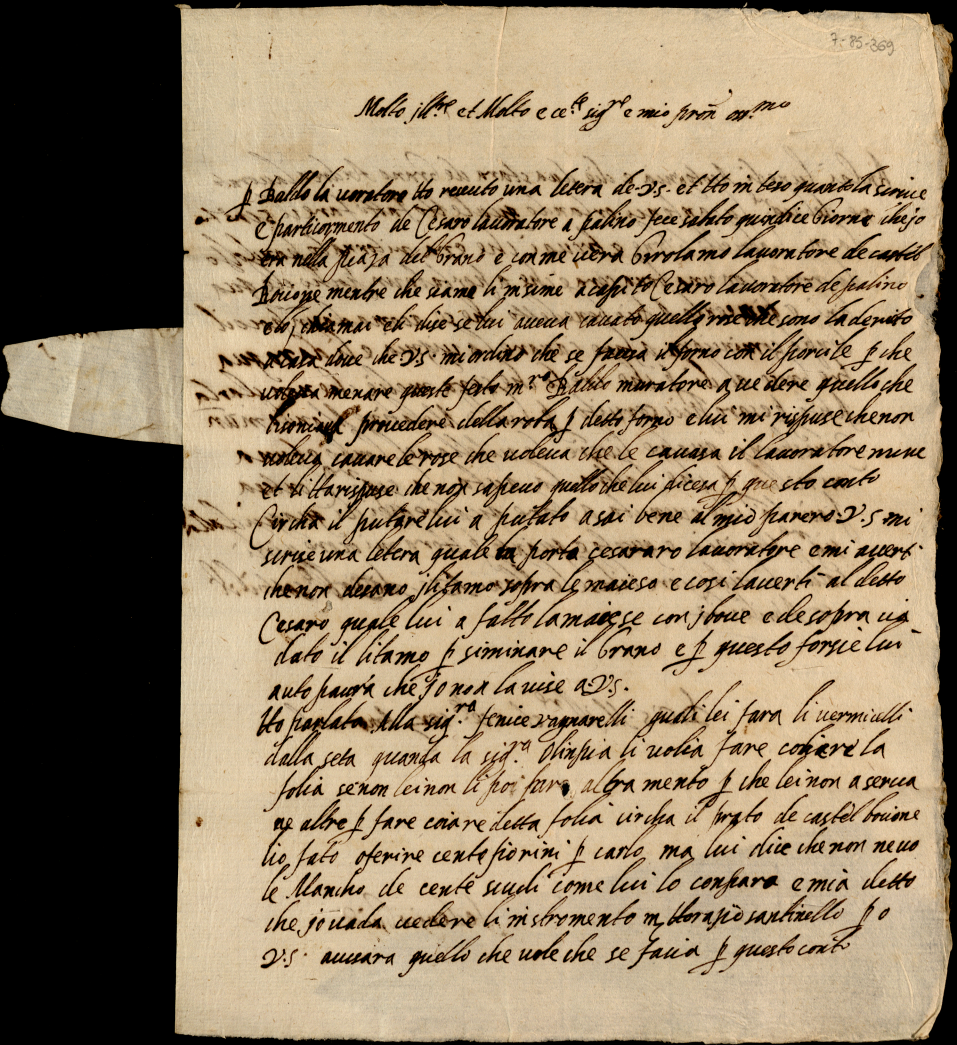 7-85-369
Molto jll.re et Molto ece.te sig.re e mio pron oss.mo
p Baldo la voratore Ho receuto una letera de v.s. et Ho inteso quanto la scrive
e particormento de Cesaro lavoratore a palino fece sabato quindice Giorne che jo
era nella piaza del Grano e con me v'era Girolamo lavoratore de castel
Bocione mentre che stiamo li insime acapito Cesaro lavoratore de palino
e lo chiamai eli dise se lui aveva cavato quelle rose che sono la dereto
a casa dove che v.s. mi ordino che se facesa il forno con il porcile p che
voleva menare queste feste m.ro Baldo muratore a vedere quello che
bisoniava provedere della roba p detto forno e lui mi rispuse che non
voleva cavare le rose che voleva che le cavasa il lavoratore nuve
et li rispuse che non sapevo quello che lui dicesa p questo conto
Circha il putare lui a putato asai bene al mio parero v.s mi
scrive una letera quale la porta cesararo lavoratore e mi averti
che non desano jlitamo sopra le maiesa e cosi laverti al detto
Cesaro quale lui a fatto la maiese con j bove e de sopra via
dato il litamo p siminare il Grano e p questo forsie lui
auto paura che jo non la vise a v.s.
Ho parlato Alla sig.ra fenice vagnarelli quali lei fara li vermicelli
dalla seta quando la sig.ra Olinpia li volia fare coliere la
folia se non lei non li poi fare altra mento p che lei non a serva
ne altre p fare coiare detta folia circha il prato de castel bocione
lio fato oferire cento fiorini p carlo ma lui dice che non ne vo
le Mancho de cente scudi come lui lo conpara e mia detto
che jo vada vedere li instromento m Horasio santinello p o
v.s. avisara quello che vole che se facia p questo conto